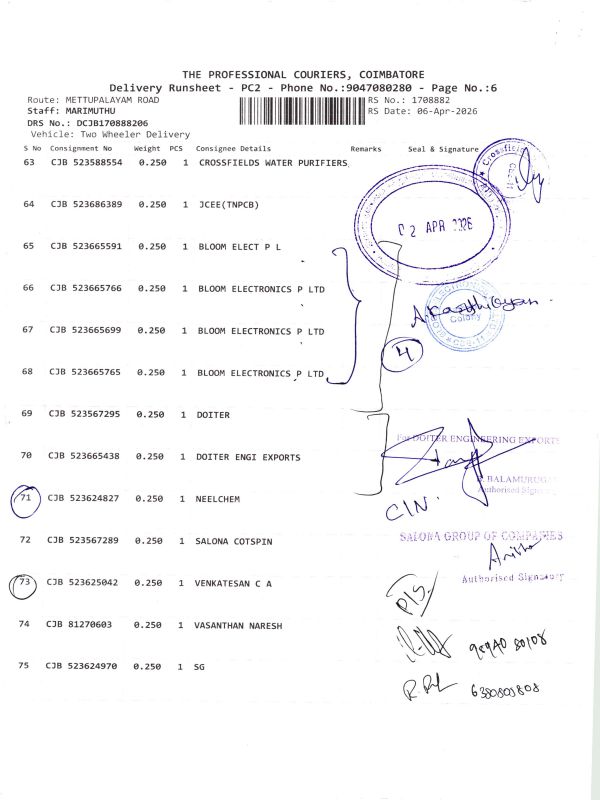 THE PROFESSIONAL COURIERS, COIMBATORE
Delivery Runsheet - PC2 - Phone No.:9047080280 - Page No.:6
Route: METTUPALAYAM ROAD RS No.: 1708882
Staff: MARIMUTHU RS Date: 06-Apr-2026
DRS No.: DCJB170888206
Vehicle: Two Wheeler Delivery
S No Consignment No Weight PCS Consignee Details Remarks Seal & Signature
63 CJB 523588554 0.250 1 CROSSFIELDS WATER PURIFIERS
64 CJB 523686389 0.250 1 JCEE(TNPCB)
02 APR 2026
65 CJB 523665591 0.250 1 BLOOM ELECT P L
66 CJB 523665766 0.250 1 BLOOM ELECTRONICS P LTD
67 CJB 523665699 0.250 1 BLOOM ELECTRONICS P LTD
Colony
4
68 CJB 523665765 0.250 1 BLOOM ELECTRONICS P LTD
69 CJB 523567295 0.250 1 DOITER
For DOITER ENGINEERING EXPORTS
70 CJB 523665438 0.250 1 DOITER ENGI EXPORTS
BALAMURUGAN
Authorised Signatory
71 CJB 523624827 0.250 1 NEELCHEM
C/N.
72 CJB 523567289 0.250 1 SALONA COTSPIN
SALONA GROUP OF COMPANIES
Authorised Signatory
73 CJB 523625042 0.250 1 VENKATESAN C A
P/S.
74 CJB 81270603 0.250 1 VASANTHAN NARESH
75 CJB 523624970 0.250 1 SG